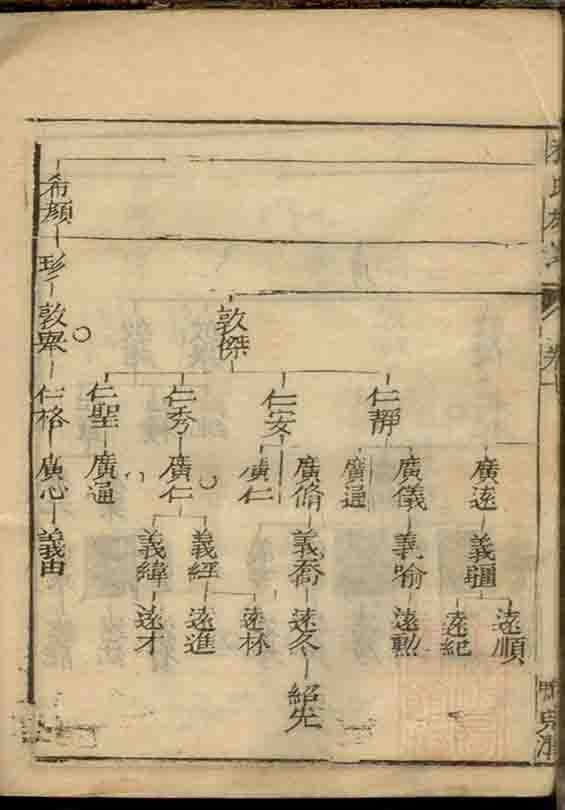 希顏
珍
敦傑
敦
仁靜
仁安
仁秀
仁聖
仁格
廣遠
廣儀
廣通
廣脩
廣仁
廣仁
廣通
廣心
義疆
義喻
義喬
義經
義緯
義由
遠順
遠紀
遠勲
遠冬
遠林
遠進
遠才
紹先